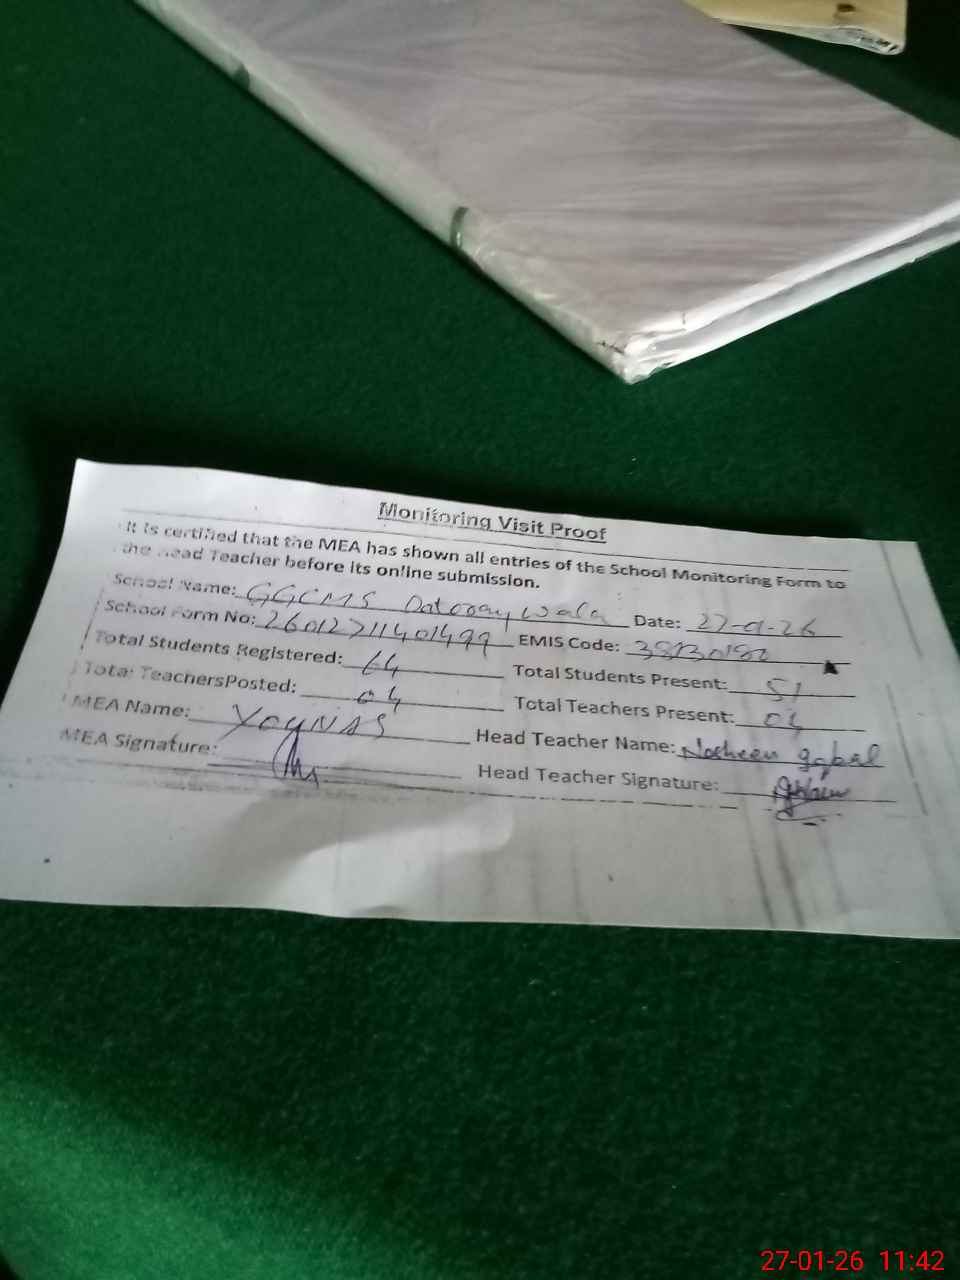 Monitoring Visit Proof
It is certified that the MEA has shown all entries of the School Monitoring Form to
the Head Teacher before its online submission.
School Name: GGCMS wala Date: 27-01-26
School Form No: 26012711401499 EMIS Code:
Total Students Registered: 64 Total Students Present: 51
Total TeachersPosted: 04 Total Teachers Present: 04
MEA Name: Head Teacher Name: Nosheen Iqbal
MEA Signature: Head Teacher Signature:
27-01-26 11:42